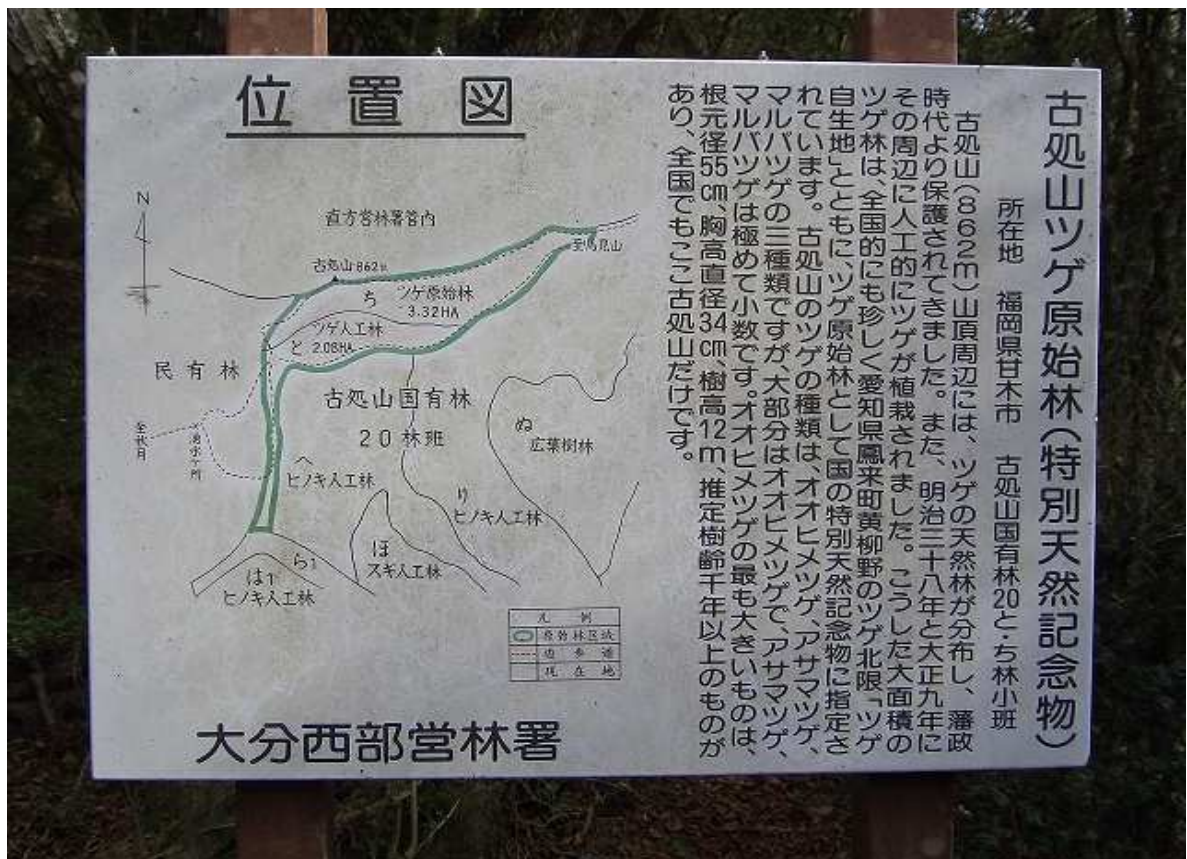 古処山ツゲ原始林(特別天然記念物)
所在地 福岡県甘木市 古処山国有林20と・ち林小班
古処山(862m)山頂周辺には、ツゲの天然林が分布し、藩政
時代より保護されてきました。また、明治三十八年と大正九年に
その周辺に人工的にツゲが植栽されました。こうした大面積の
ツゲ林は、全国的にも珍しく愛知県鳳来町黄柳野のツゲ北限「ツゲ
自生地」とともに、ツゲ原始林として国の特別天然記念物に指定さ
れています。古処山のツゲの種類は、オオヒメツゲ、アサマツゲ、
マルバツゲの三種類ですが、大部分はオオヒメツゲで、アサマツゲ、
マルバツゲは極めて小数です。オオヒメツゲの最も大きいものは、
根元径55cm、胸高直径34cm、樹高12m、推定樹齢千年以上のものが
あり、全国でもここ古処山だけです。
位置図
N
直方営林署管内
至馬見山
古処山862m
ち
ツゲ原始林
3.32HA
ツゲ人工林
と 2.08HA
民有林
古処山国有林
20林班
至秋月
ぬ
広葉樹林
へ
ヒノキ人工林
り
ヒノキ人工林
ほ
スギ人工林
ら1
は1
ヒノキ人工林
凡例
原始林区域
遊歩道
現在地
大分西部営林署